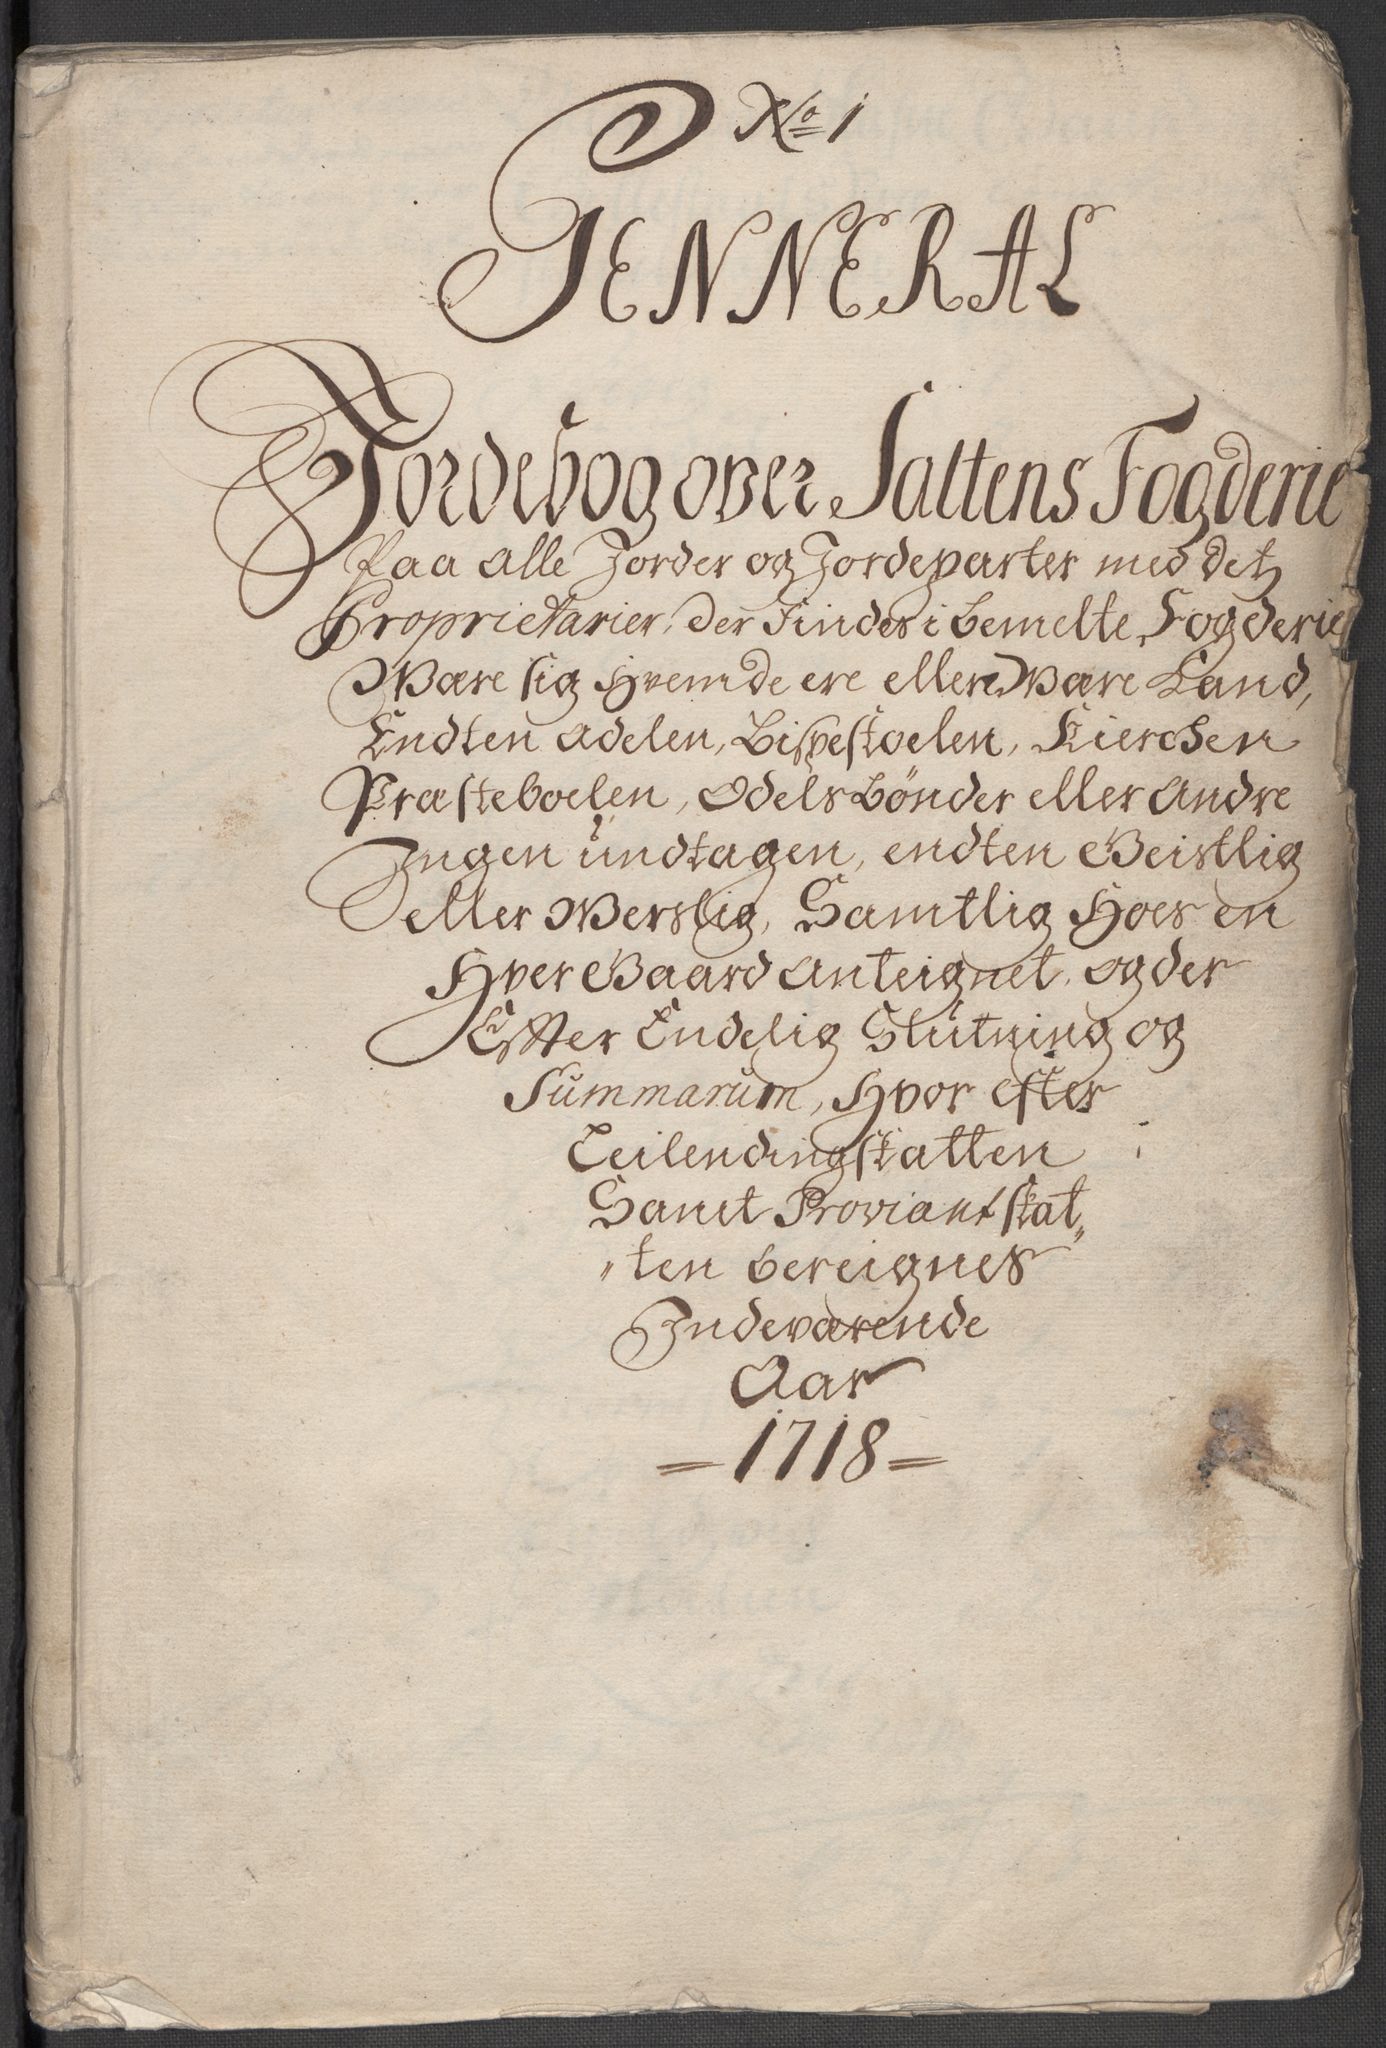 No 1
GENNERAL
Jordebog over Saltens Fogderie
Paa alle Jorder og Jordeparter med detz
Proprietarier, der Findes i bemelte Fogderie
Være sig Hvem de ere eller Være Kand,
Endten Adelen, Bispestoelen, Kierchen
Præsteboelen, Odels Bønder eller Andre
Ingen undtagen, endten Geistlig
eller Verslig, Samtlig Hoes en
Hver Gaard Anteignet, og der
Effter Endelig Slutning og
Summarum, Hvor efter
Leilendingskatten
Samt Proviantskat„
„ten bereignes
Indeværende
Aar
= 1718 =